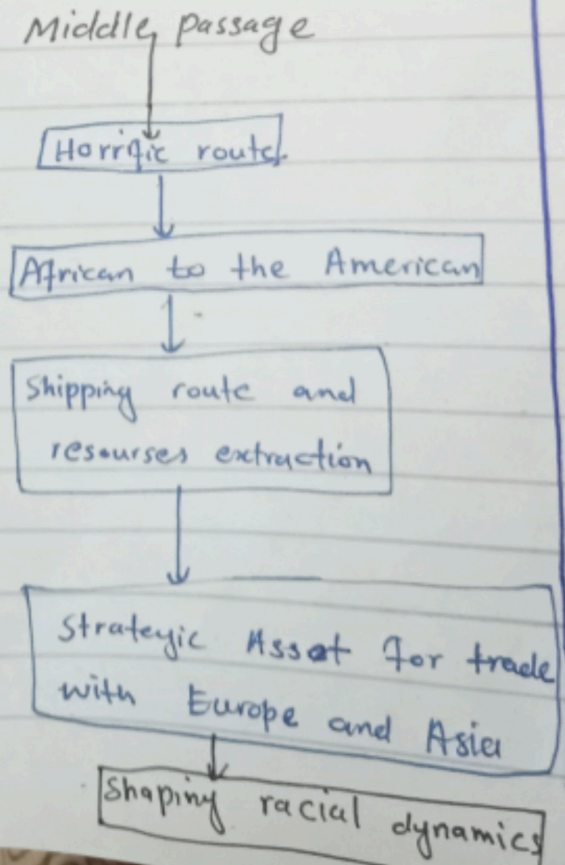 Middle passage
Horrific route
African to the American
Shipping route and
resourses extraction
Strategic Asset for trade
with Europe and Asia
Shaping racial dynamics